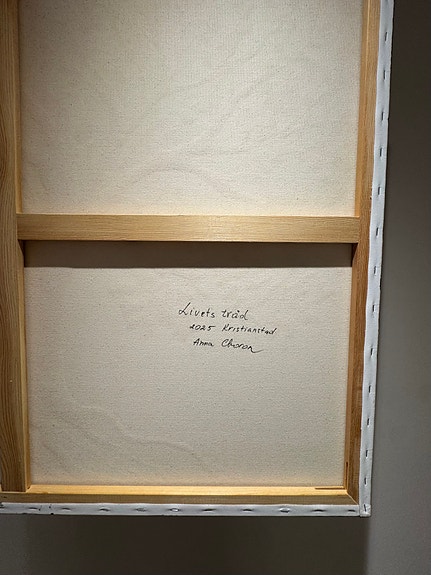 Livets tråd
2025 Kristianstad
Anna Choron